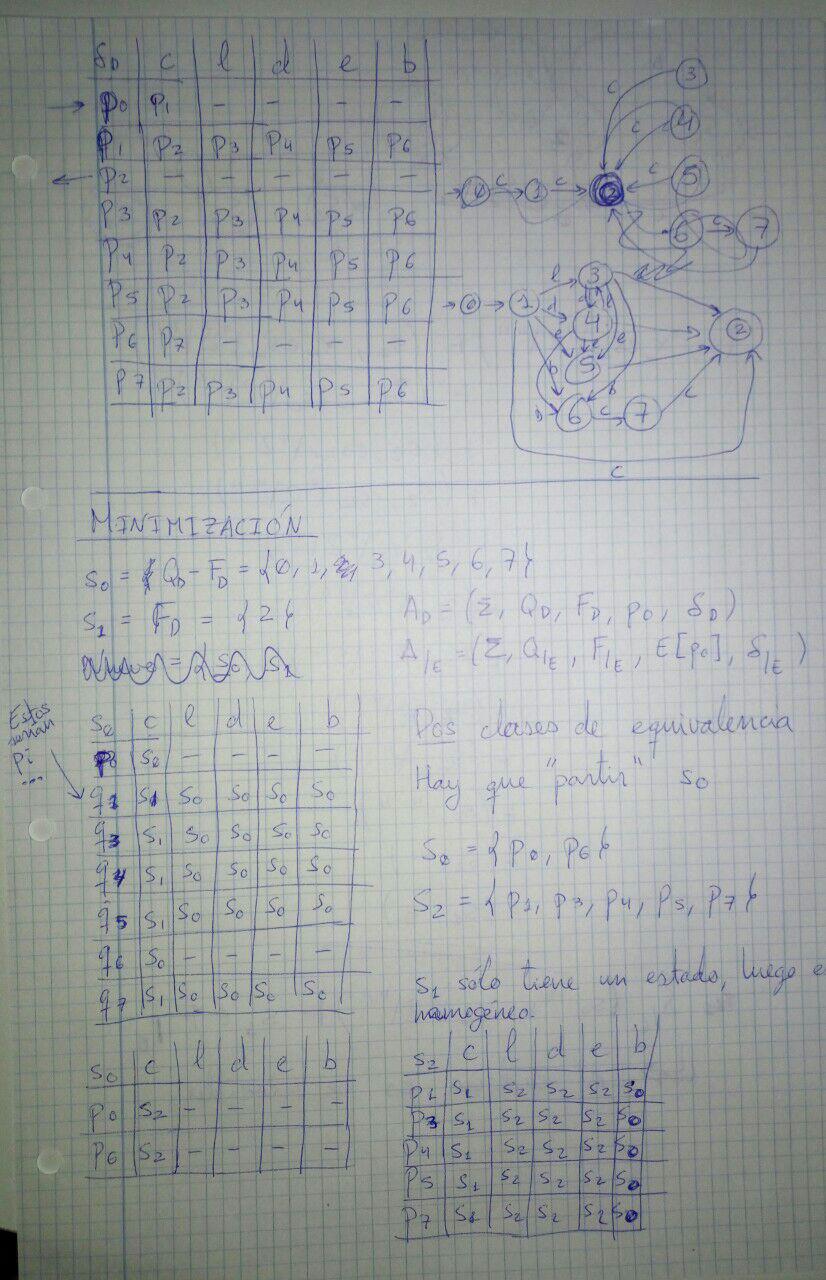 δD c l d e b
→ p0 p1 - - - -
p1 p2 p3 p4 p5 p6
← p2 - - - - -
p3 p2 p3 p4 p5 p6
p4 p2 p3 p4 p5 p6
p5 p2 p3 p4 p5 p6
p6 p7 - - - -
p7 p2 p3 p4 p5 p6
3
c
4
c
5
c
0 c 1 c 2
6 c 7
3
l
0 1 d 4 e 2
5
b
b 6 c 7 c
c
MINIMIZACIÓN
S0 = QD - FD = {0, 1, 3, 4, 5, 6, 7}
S1 = FD = {2}
AD = (Σ, QD, FD, p0, δD)
A/E = (Σ, Q/E, F/E, E[p0], δ/E)
Estos
serían
pi
...
S0 c l d e b
p0 S0 - - - -
q1 S1 S0 S0 S0 S0
q3 S1 S0 S0 S0 S0
q4 S1 S0 S0 S0 S0
q5 S1 S0 S0 S0 S0
q6 S0 - - - -
q7 S1 S0 S0 S0 S0
Dos clases de equivalencia
Hay que "partir" S0
S0 = {p0, p6}
S2 = {p1, p3, p4, p5, p7}
S1 sólo tiene un estado, luego e
homogéneo.
S0 c l d e b
p0 S2 - - - -
p6 S2 - - - -
S2 c l d e b
p1 S1 S2 S2 S2 S0
p3 S1 S2 S2 S2 S0
p4 S1 S2 S2 S2 S0
p5 S1 S2 S2 S2 S0
p7 S1 S2 S2 S2 S0